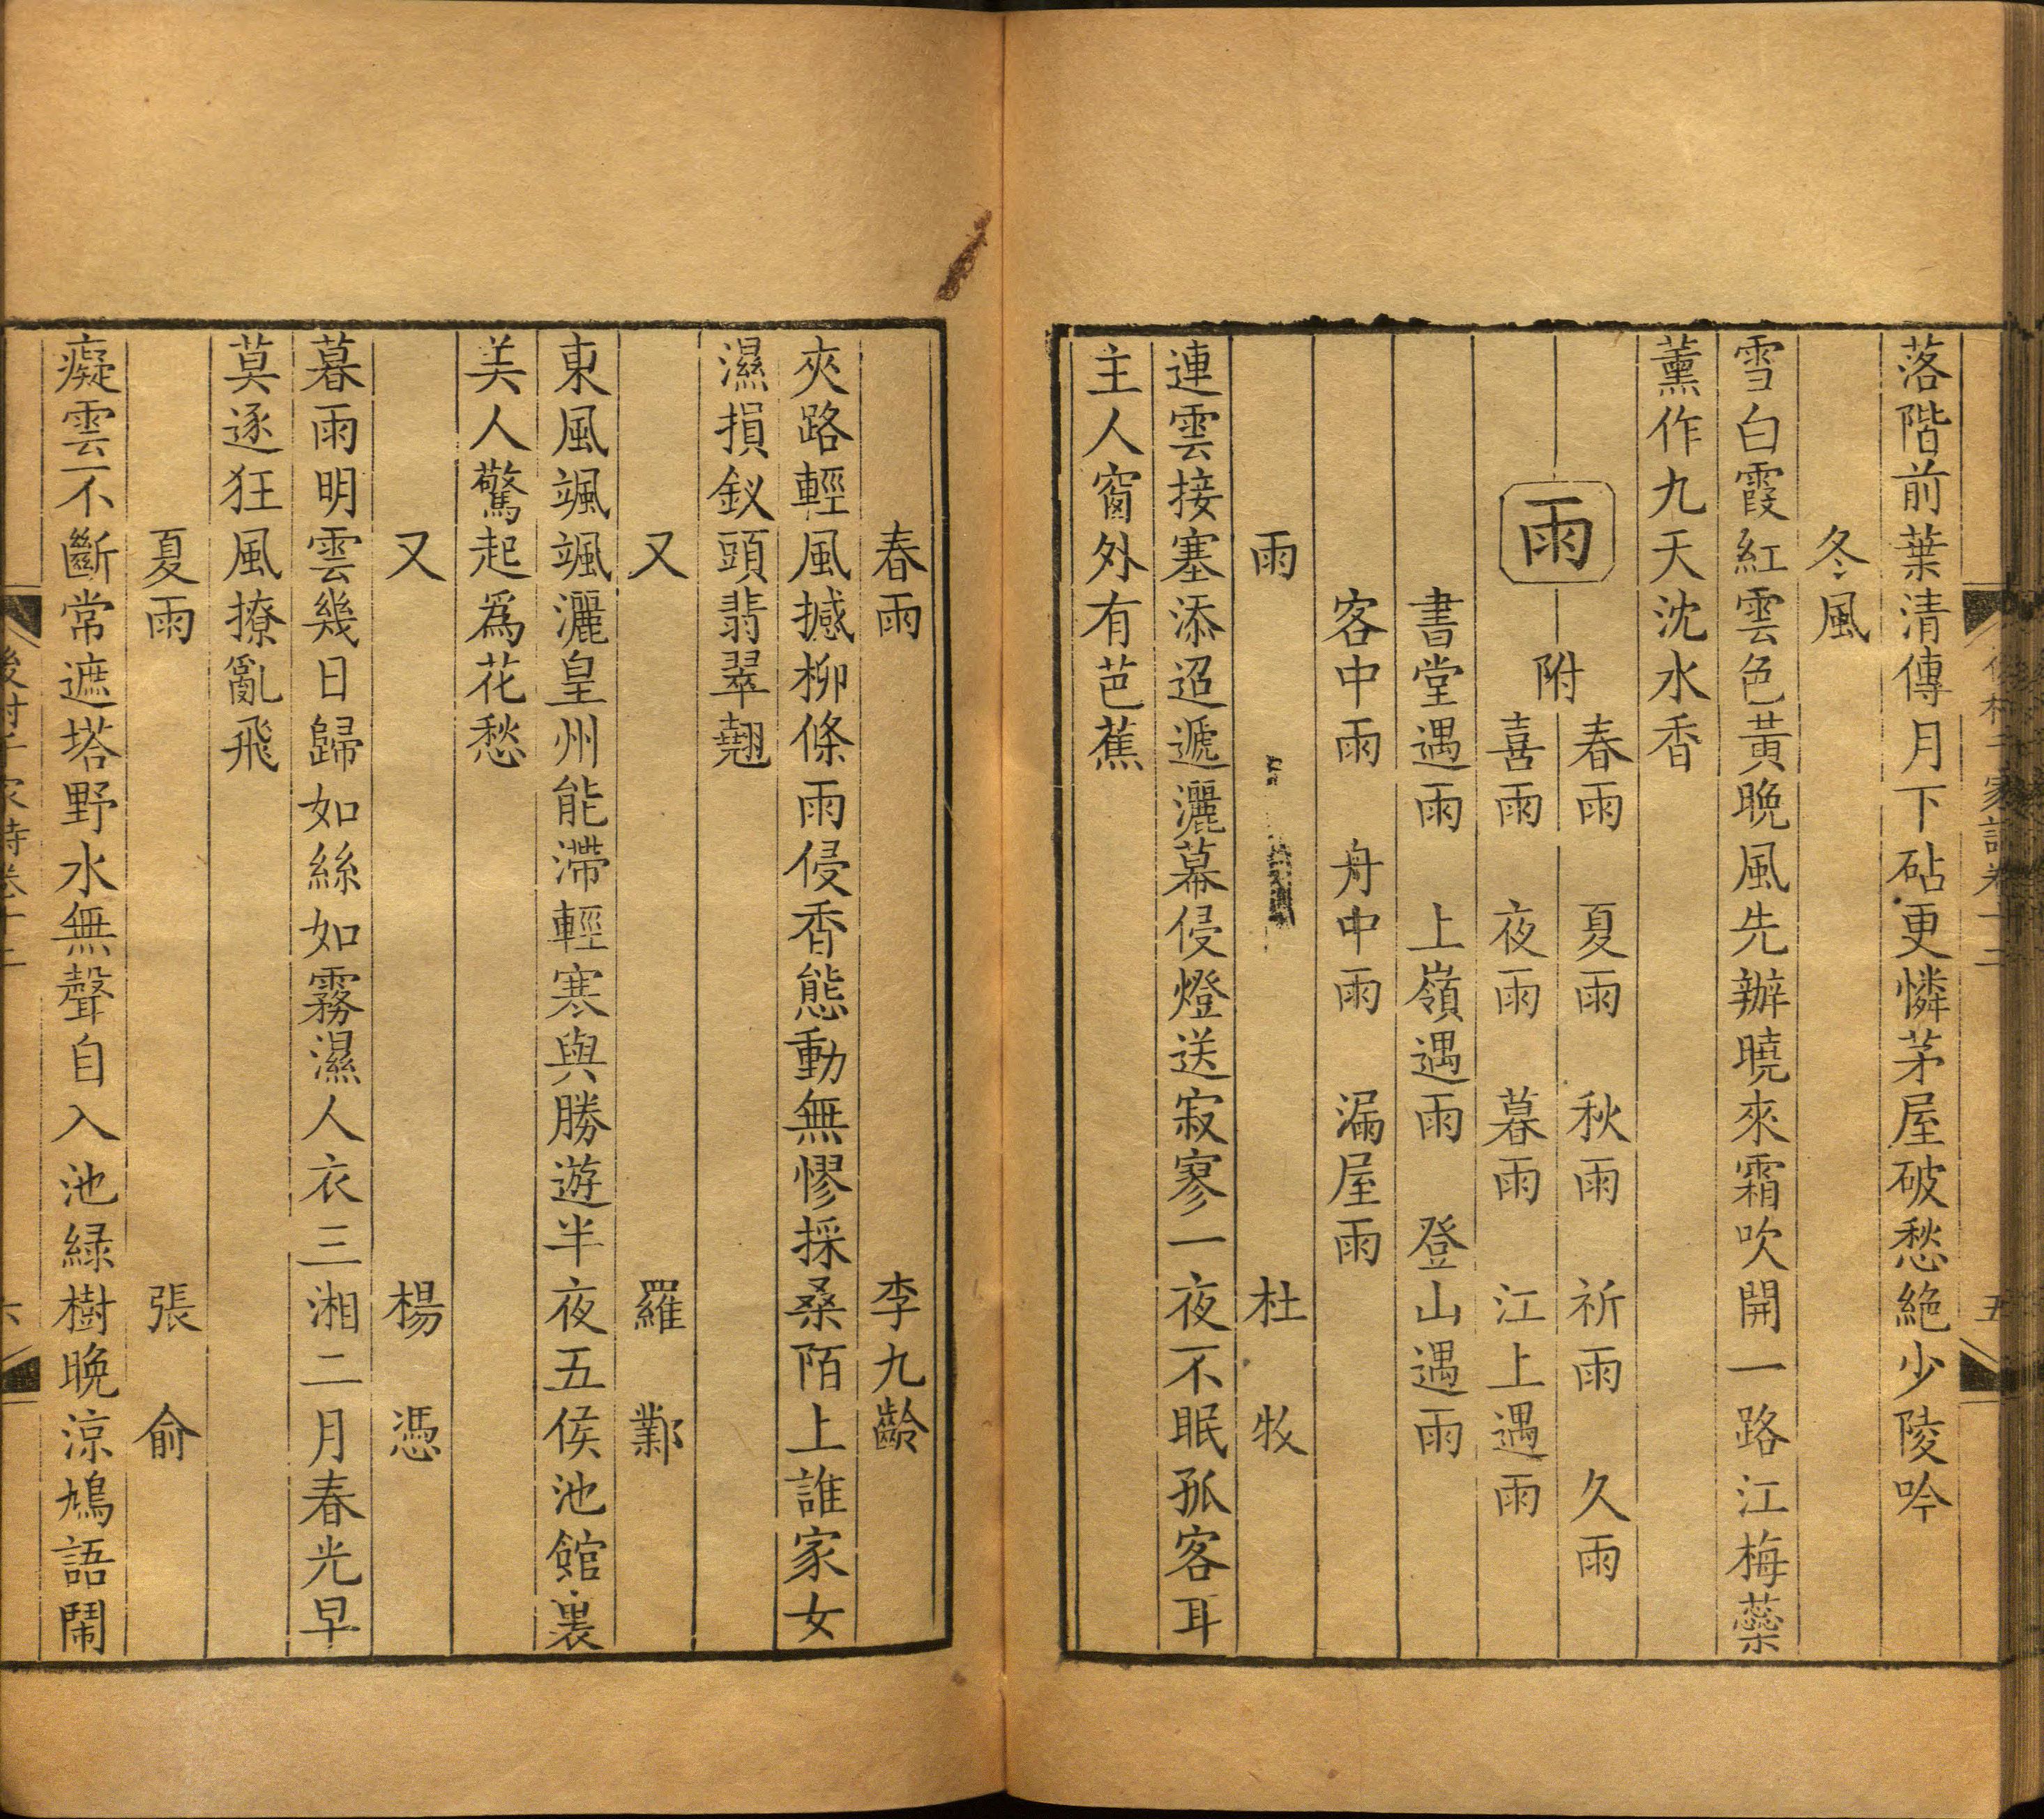 落階前葉清傳月下砧更憐茅屋破愁絶少陵吟
冬風
雪白霞紅雲色黃晚風先辦曉來霜吹開一路江梅蘂
薰作九天沈水香
雨 附
春雨 夏雨 秋雨 祈雨 久雨
喜雨 夜雨 暮雨 江上遇雨
書堂遇雨 上嶺遇雨 登山遇雨
客中雨 舟中雨 漏屋雨
雨 杜牧
連雲接塞添迢遞灑幕侵燈送寂寥一夜不眠孤客耳
主人窗外有芭蕉
春雨 李九齡
夾路輕風撼柳條雨侵香態動無憀採桑陌上誰家女
濕損釵頭翡翠翹
又 羅鄴
東風颯颯灑皇州能滯輕寒與勝遊半夜五侯池館裏
美人驚起爲花愁
又 楊憑
暮雨明雲幾日歸如絲如霧濕人衣三湘二月春光早
莫逐狂風撩亂飛
夏雨 張俞
癡雲不斷常遮塔野水無聲自入池緑樹晚涼鳩語鬧
後村千家詩卷十二 六